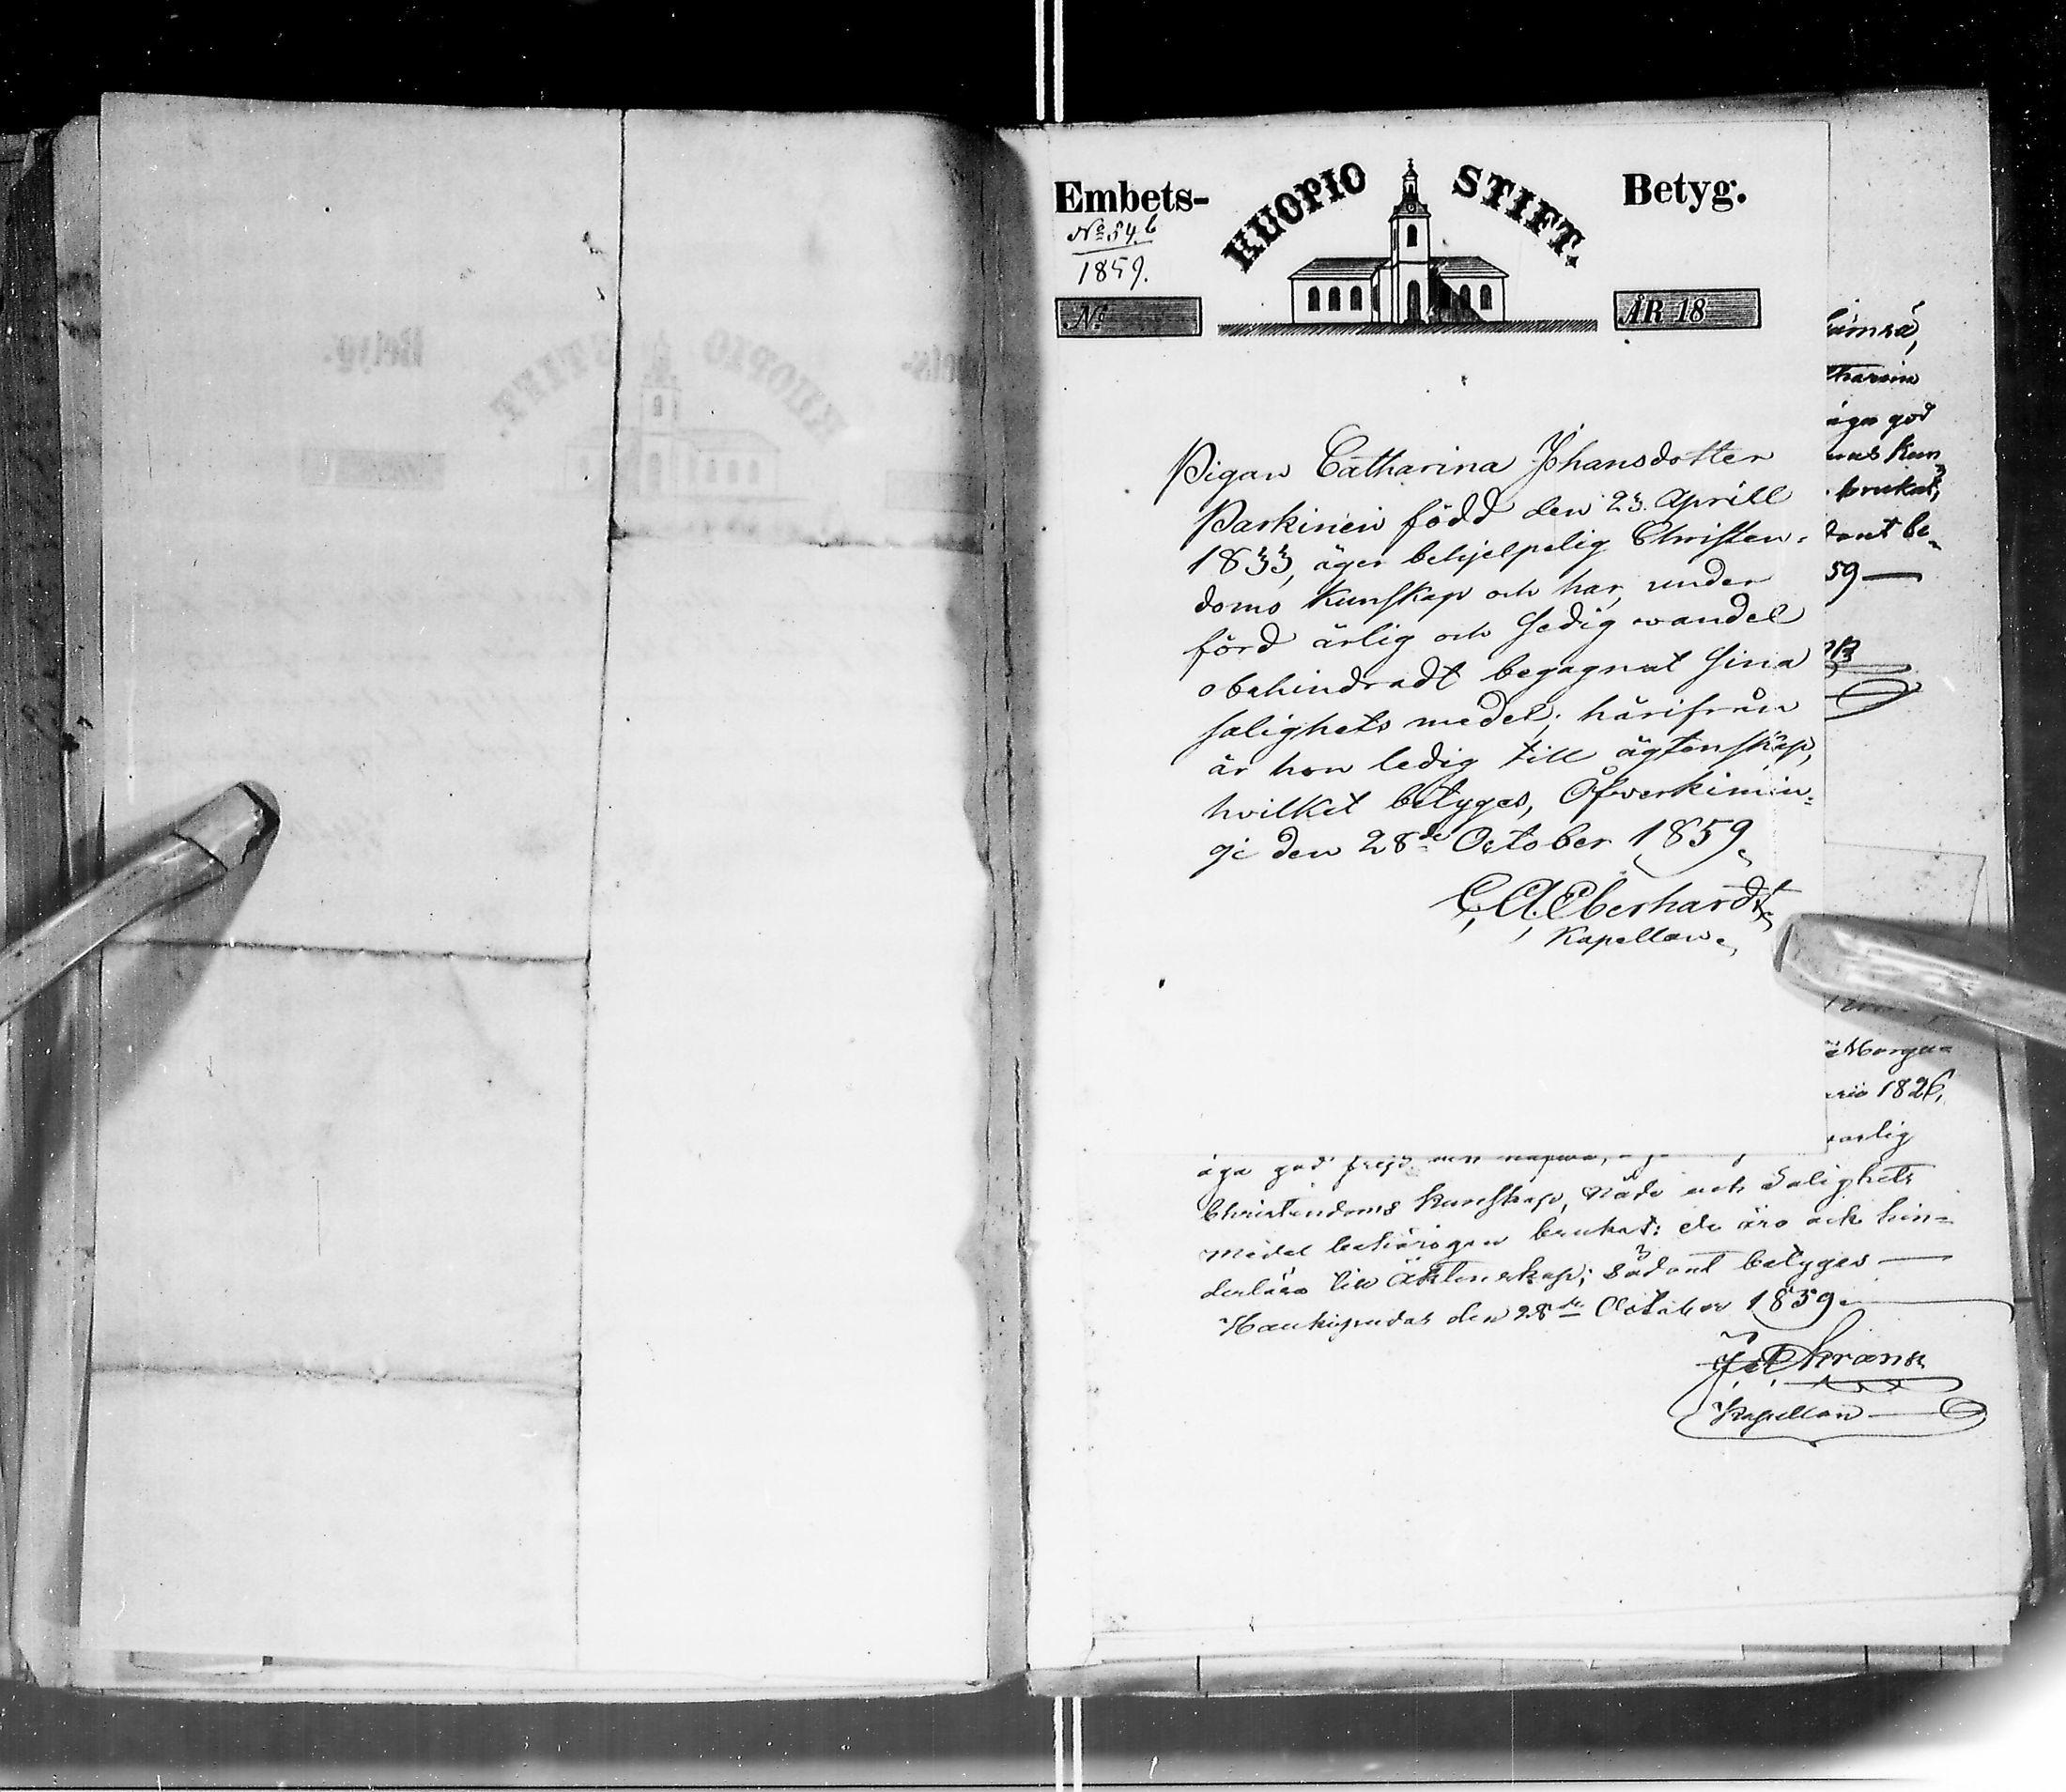 Embets- KUOPIO STIFT. Betyg.
No 54. b
1859.
No
ÅR 18
Pigan Catharina Johansdotter
Parkinen född den 23. Aprill
1833, äger behjelpelig Christen-
doms kunskap och har, under
förd ärlig och sedig vandel
obehindradt begagnat sina
salighets medel; härifrån
är hon ledig till ägtenskap,
hvilket betyges, Öfverkimin-
gi den 28de October 1859.
C. A. Eberhardt
Kapellan.
äga god
brukat,
dant be-
59
1826,
äga god frejd
Christendoms kunskap, Nåde och Salighets
medel behörigen brukat; de äro ock hin-
derlösa till Äktenskap; sådant betyges
Haukipudas den 28de October 1859.
Kapellan